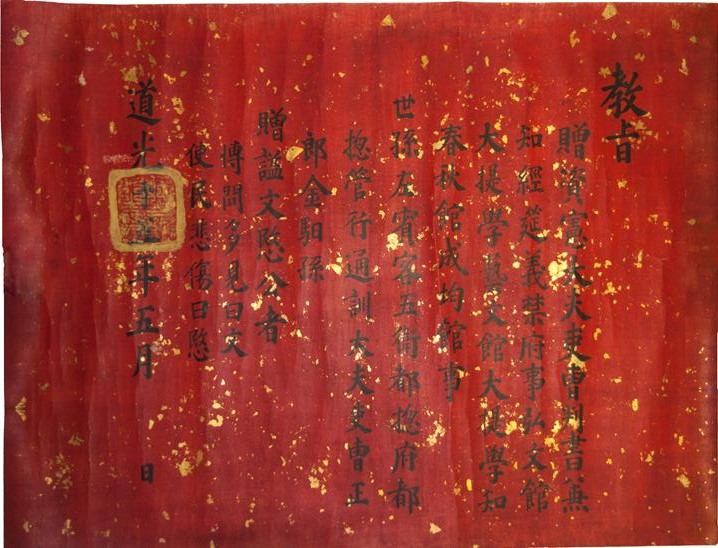 敎旨
贈資憲大夫吏曹判書兼
知經筵義禁府事弘文館
大提學藝文館大提學知
春秋館成均館事
世孫左賓客五衛都揔府都
揔管行通訓大夫吏曹正
郎金馹孫
贈諡文愍公者
博問多見曰文
使民悲傷曰愍
道光十五年五月 日